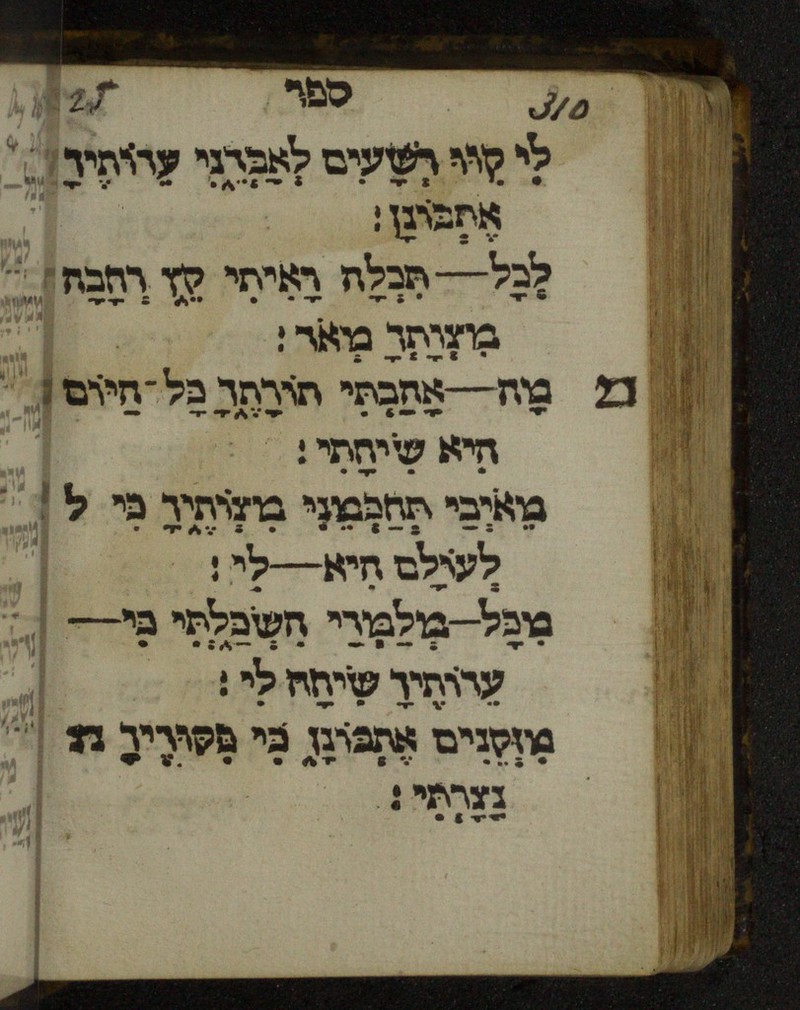 310 ספר 25
לִי קִוּוּ רְשָׁעִים לְאַבְּדֵנִי עֵדוֹתֶיךָ
אֶתְבּוֹנָן׃
לְכָל—תִּכְלָה רָאִיתִי קֵץ רְחָבָה
מִצְוָתְךָ מְאֹד׃
מ מָה—אָהַבְתִּי תוֹרָתֶךָ כָּל־הַיּוֹם
הִיא שִׂיחָתִי׃
מֵאֹיְבַי תְּחַכְּמֵנִי מִצְוֹתֶיךָ כִּי ל
לְעוֹלָם הִיא—לִי׃
מִכָּל—מְלַמְּדַי הִשְׂכַּלְתִּי כִּי—
עֵדוֹתֶיךָ שִׂיחָה לִי׃
מִזְּקֵנִים אֶתְבּוֹנָן כִּי פִקּוּדֶיךָ נצ
נָצָרְתִּי׃